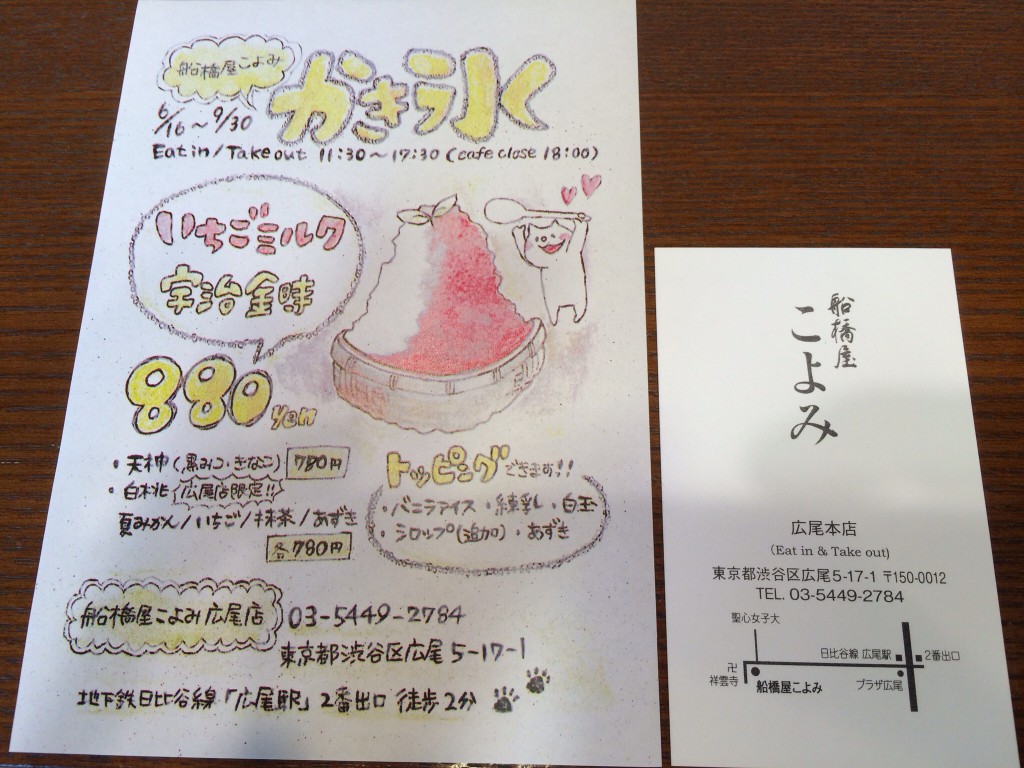 船橋屋こよみ
かき氷
6/16〜9/30
Eat in/Take out 11:30〜17:30 (cafe close 18:00)
いちごミルク
宇治金時
880yen
・天神(黒みつ・きなこ) 780円
・白桃 広尾店限定!!
夏みかん/いちご/抹茶/あずき
各780円
トッピングできます!!
・バニラアイス ・練乳 ・白玉
シロップ(追加) ・あずき
船橋屋こよみ広尾店 03-5449-2784
東京都渋谷区広尾5-17-1
地下鉄日比谷線「広尾駅」2番出口 徒歩2分
船橋屋
こよみ
広尾本店
(Eat in & Take out)
東京都渋谷区広尾5-17-1 〒150-0012
TEL. 03-5449-2784
聖心女子大
日比谷線 広尾駅
2番出口
卍
祥雲寺
船橋屋こよみ
プラザ広尾